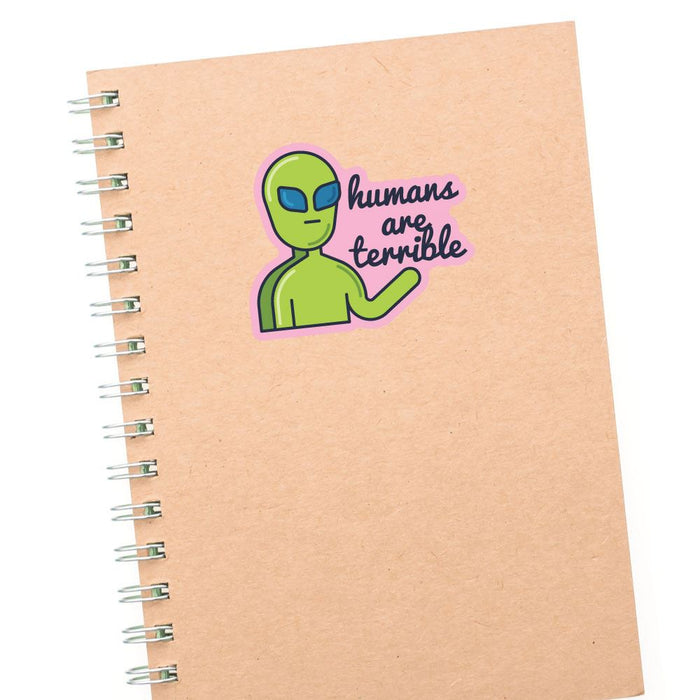 humans
are
terrible